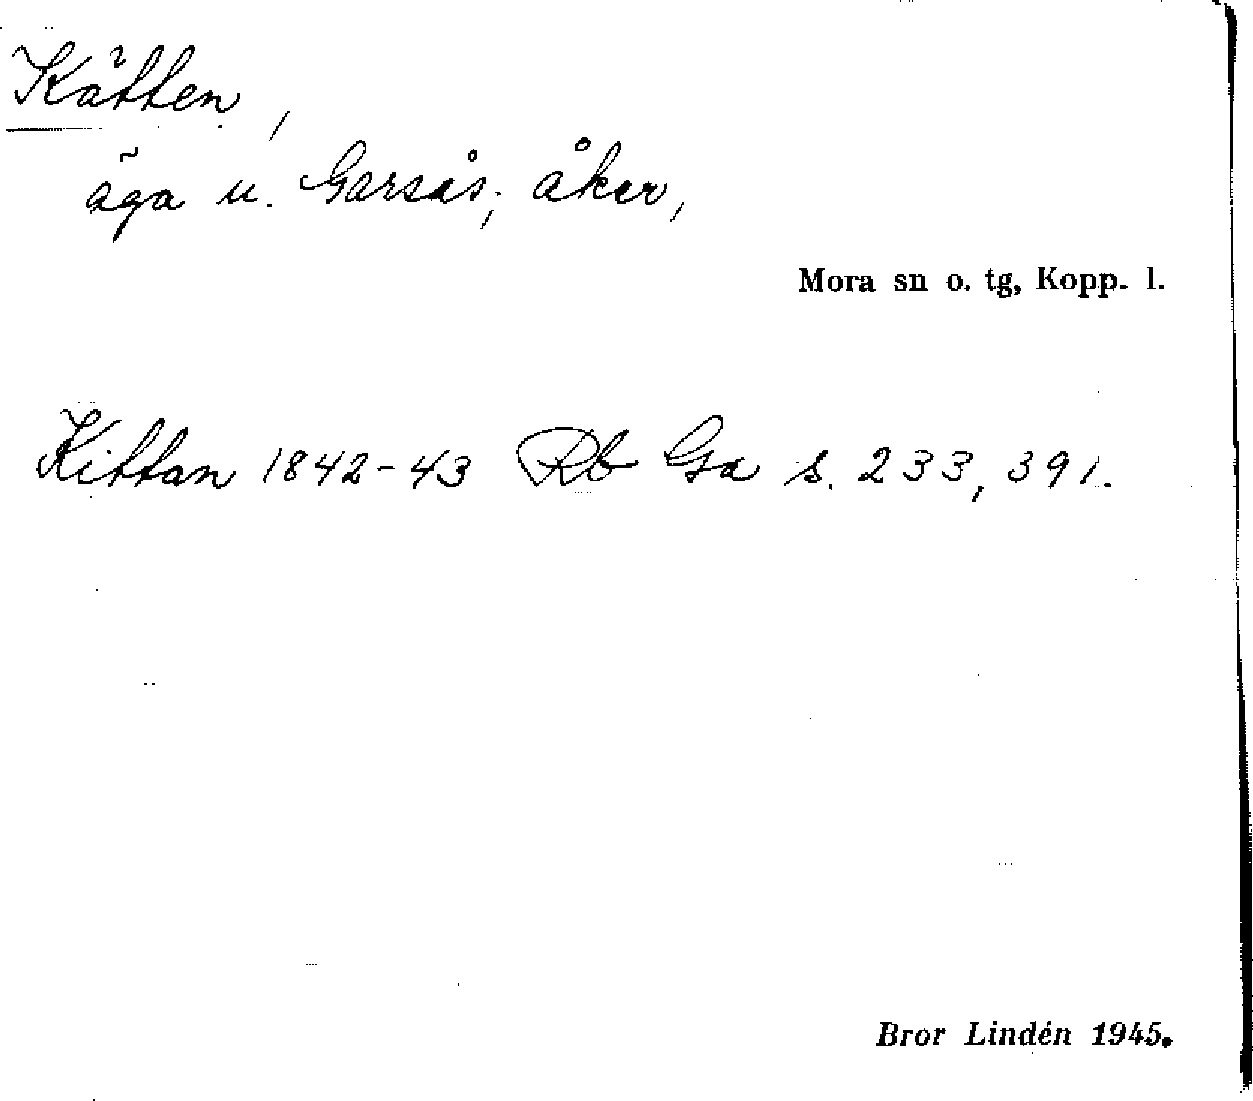 Kätten,
äga u. Garsås; åker,
Mora sn o. tg, Kopp. l.
Kittan 1842-43 Rb Ga s. 233, 391.
Bror Lindén 1945.